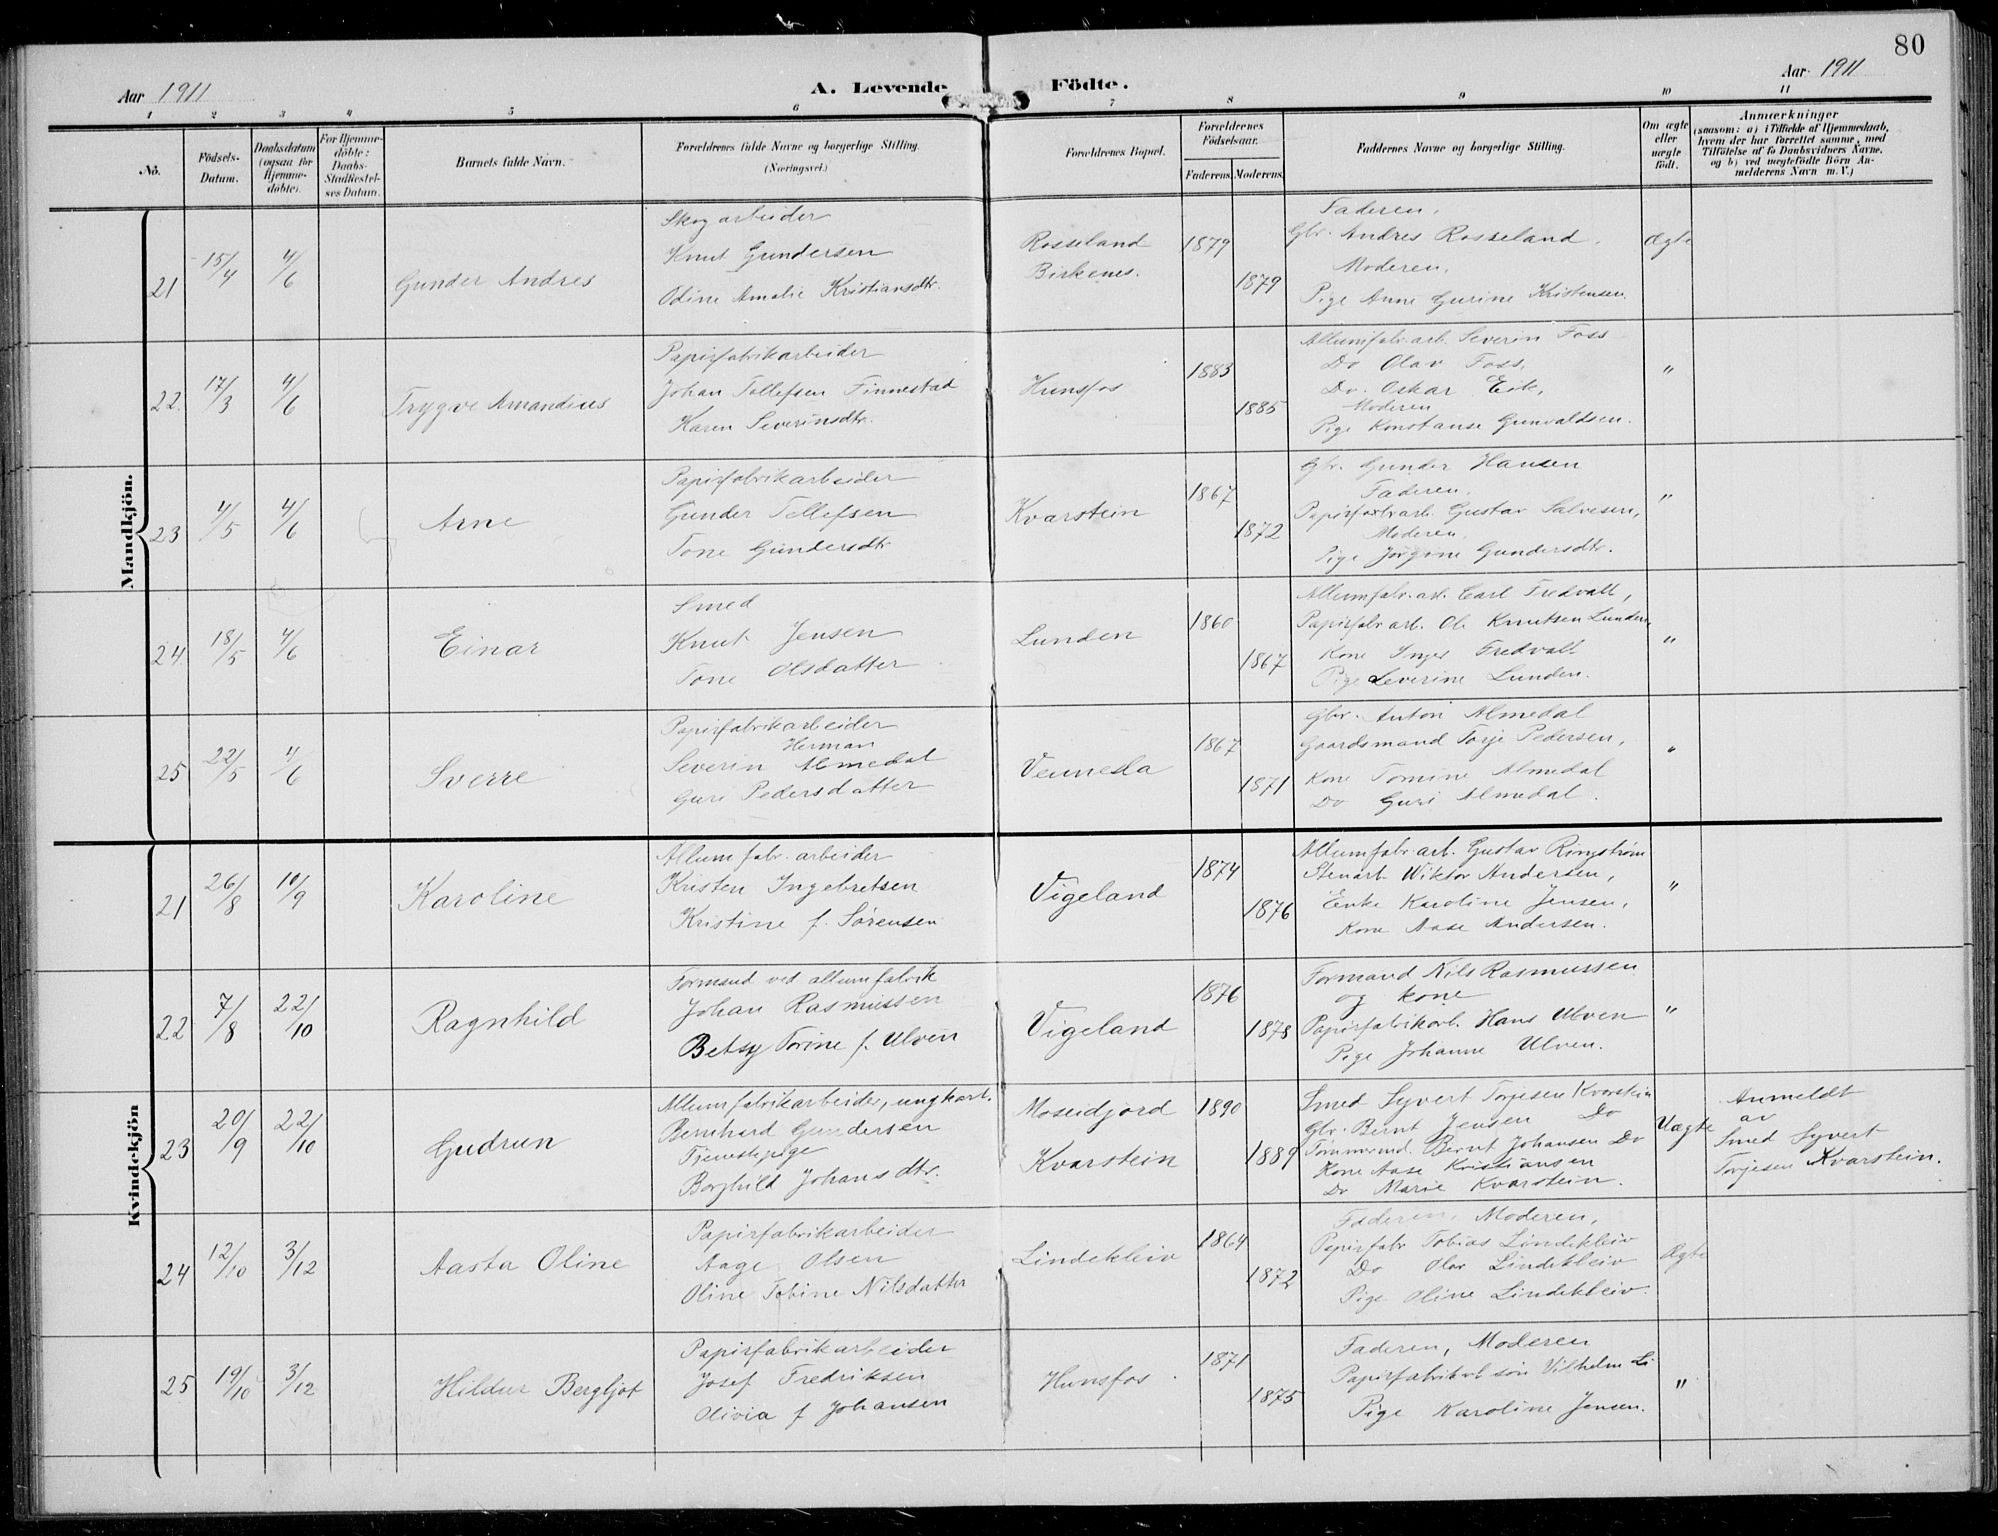 80
Aar 1911
A. Levende Födte.
Aar 1911
1 2 3 4 5 6 7 8 9 10 11
No.
Födsels-Datum.
Daabsdatum (ogsaa for Hjemme-döbte).
For Hjemme-döbte: Daabs-Stadfæstel-ses Datum.
Barnets fulde Navn.
Forældrenes fulde Navne og borgerlige Stilling.
(Næringsvei.)
Forældrenes Bopæl.
Forældrenes Födselsaar.
Faderens. Moderens.
Faddernes Navne og borgerlige Stilling.
Om ægte eller uægte födt.
Anmærkninger
(saasom: a) i Tilfælde af Hjemmedaab,
hvem der har forrettet samme, med
Tilföielse af to Daabsvidners Navne,
og b) ved uegtefödte Börn An-
melderens Navn m. V.)
Mandkjön.
21 15/4 4/6 Gunder Andres
Skogarbeider
Knut Gundersen
Odine Amalie Kristiansdtr.
Rosseland
Birkenes.
1879
1879
Faderen,
Gbr. Andres Rosseland,
Moderen,
Pige Anne Gurine Kristensen.
Ægte
22. 17/3 4/6 Trygve Amandius
Papirfabrikarbeider
Johan Tellefsen Finnestad
Karen Severinsdtr.
Hunsfos
1883
1885
Allumfabr.arb. Severin Foss
Do Olav Foss,
Do. Oskar Eik,
Moderen
Pige Konstanse Gunvaldsen.
"
23 4/5 4/6 Arne
Papirfabrikarbeider
Gunder Tellefsen
Tone Gundersdtr
Kvarstein
1867
1872
Gbr. Gunder Hansen
Faderen,
Papirfabr.arb. Gustav Salvesen,
Moderen,
Pige Jørgine Gundersdtr.
"
24. 18/5 4/6 Einar
Smed
Knut Jensen
Tone Olsdatter
Lunden
1860
1867
Allumfabr.arb. Carl Fredvall,
Papirfabr.arb. Ole Knutsen Lunden
Kone Inger Fredvall
Pige Severine Lunden.
"
25 22/5 4/6 Sverre
Papirfabrikarbeider
Herman
Severin Almedal
Guri Pedersdatter
Vennesla
1867
1871
Gbr. Anton Almedal
Gaardsmand Torje Pedersen,
Kone Tomine Almedal
Do Guri Almedal.
"
Kvindekjön
21 26/8 10/9 Karoline
Allumfabr.arbeider
Kristen Ingebretsen
Kristine f. Sørensen
Vigeland
1874
1876
Allumfabr.arb. Gustav Ringstrøm
Stenarb. Wiktor Andersen,
Enke Karoline Jensen,
Kone Aase Andersen.
"
22 7/8 22/10 Ragnhild
Formand ved allumfabrik
Johan Rasmussen
Betsy Torine f. Ulven
Vigeland
1876
1878
Formand Nils Rasmussen
og kone
Papirfabrikarb. Hans Ulven
Pige Johanne Ulven.
"
23 20/9 22/10 Gudrun
Allumfabrikarbeider, ungkarl.
Bernhard Gundersen
Tjenestepige
Borghild Johansdtr.
Moseidjord
Kvarstein
1890
1889
Smed Syvert Torjesen Kvarstein
Gbr. Bernt Jensen Do
Tømmermd. Bernt Johansen Do
Kone Aase Kristiansen
Do Marie Kvarstein.
Uægte
Anmeldt
av
Smed Syvert
Torjesen Kvarstein.
24 12/10 3/12 Aasta Oline
Papirfabrikarbeider
Aage Olsen
Oline Tobine Nilsdatter
Lindekleiv
1864
1872
Faderen, Moderen,
Papirfabr Tobias Lindekleiv
Do Olav Lindekleiv
Pige Oline Lindekleiv.
Ægte
25 19/10 3/12 Hildur Bergljot
Papirfabrikarbeider
Josef Fredriksen
Olivia f Johansen
Hunsfos
1871
1875
Faderen, Moderen
Papirfabrikarb søn Vilhelm Li
Pige Karoline Jensen.
"